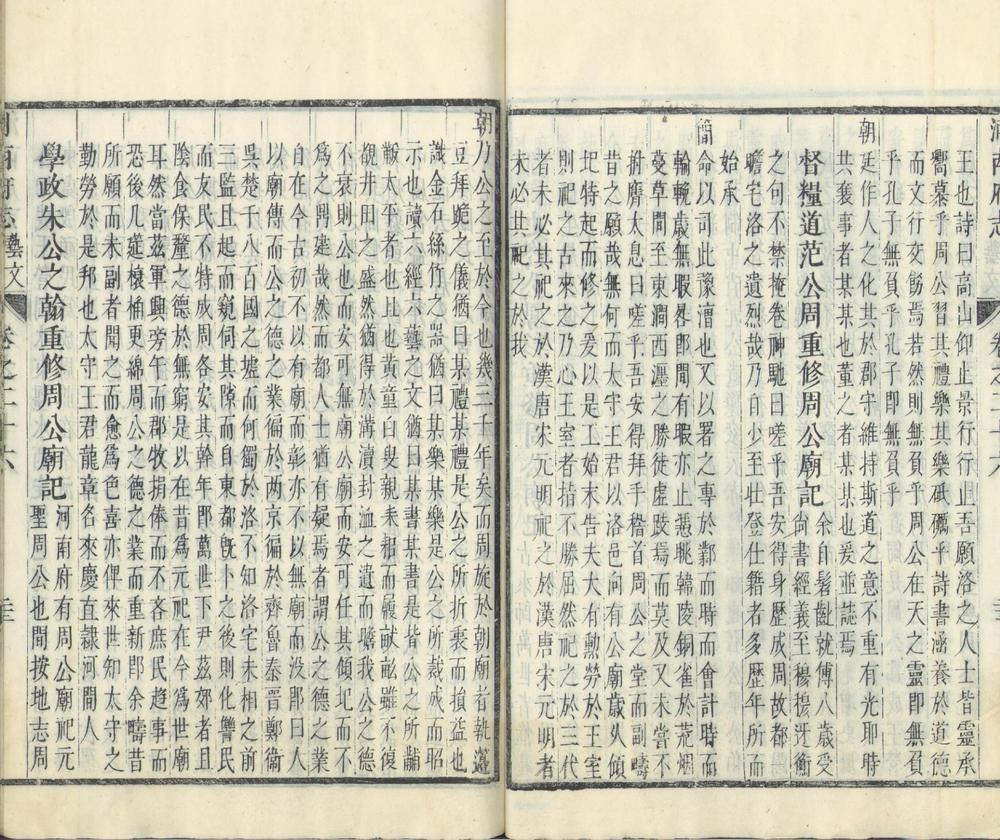 王也詩曰高山仰止景行行止吾願洛之人士皆靈承
嚮慕乎周公習其禮樂其樂砥礪乎詩書涵養於道德
而文行交飭焉若然則無負乎周公在天之靈即無負
乎孔子無負乎孔子即無負
朝廷作人之化其於郡守維持斯道之意不重有光即時
共襄事者某某也董之者某某也爰並誌焉
督糧道范公周重修周公廟記
余自髫齔就傅八歲受
尚書經義至穆穆迓衡
之句不禁掩卷神馳曰嗟乎吾安得身歷成周故都一
瞻宅洛之遺烈哉乃自少至壯登仕籍者多歷年所而
始承
簡命以司此豫漕也又以署之專於鄴而時而會計時而
輸輓歲無暇晷郎間有暇亦止憑眺韓陵銅雀於荒烟
蔓草間至東澗西瀍之勝徒虛跂焉而莫及又未嘗不
拊膺太息曰嗟乎吾安得拜手稽首周公之堂而副疇
昔之願哉無何而太守王君以洛邑向有公廟歲久傾
圮特起而修之爰以是工始末告夫大有勲勞於王室
則祀之古來之乃心王室者指不勝屈然祀之於三代
者未必其祀之於漢唐宋元明祀之於漢唐宋元明者
未必其祀之於我
朝乃公之至於今也幾三千年矣而周旋於朝廟者執籩
豆拜跪之儀猶曰某禮某禮是公之所折衷而損益也
識金石絲竹之器猶曰某樂某樂是公之所裁成而昭
示也讀六經六藝之文猶曰某書某書是皆公之所黼
黻太平者也且也黃童白叟親耒耜而履畎畝雖不復
覩井田之盛然猶得於溝瀆封洫之遺而曕我公之德
不衰則公也而安可無廟公廟而安可任其傾圮而不
為之鼎建哉然而都人士猶有疑焉者謂公之德之業
自在今古初不以有廟而彰亦不以無廟而沒郎曰人
以廟在而公傳則公之德之業徧於兩京徧於齊魯秦晉鄭衛
吳楚千八百國之墟而何獨於洛不知洛宅未相之前
三監且起而窺伺其隙而自東都旣卜之後則化讐民
而友民不特成周各安其幹年郎萬世下尹茲郊者且
陰食保釐之德於無窮是以在昔為元祀在今為世廟
耳然當茲軍興旁午而郡牧捐俸而不吝庶民趋事而
恐後几筵榱桷更綿周公之德之業而重新郎余疇昔
所願而未副者聞之而愈為色喜亦俾來世知太守之
勤勞於是邦也太守王君龍章名來慶直隸河間人
學政朱公之翰重修周公廟記
河南府有周公廟祀元
聖周公也間按地志周
河南府志
藝文
卷之二十六